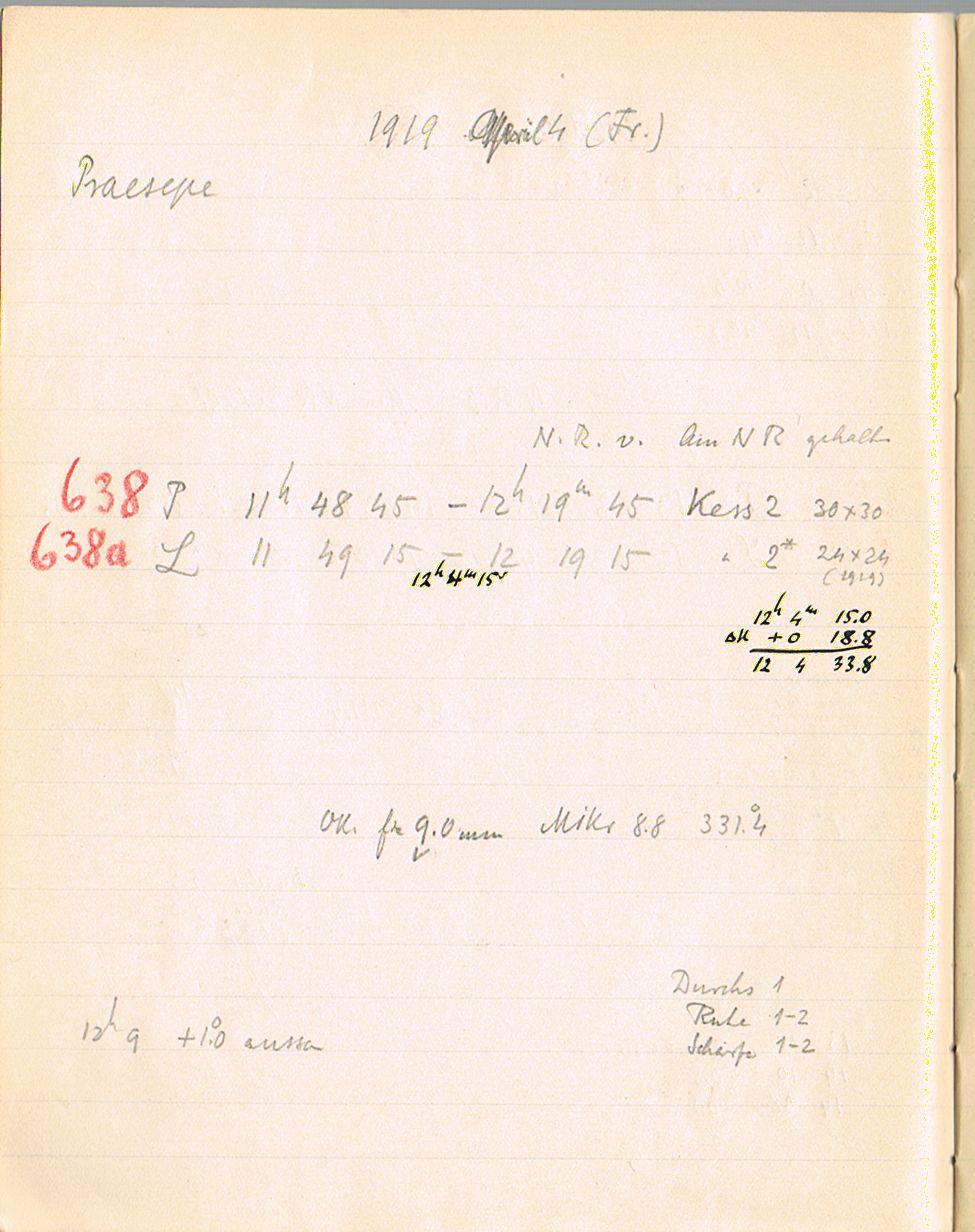 1919 April 4 (Fr.)
Praesepe
N. R. v. Am N R gehalt
638 P 11h 48 45 – 12h 19m 45 Kess 2 30×30
638a L 11 49 15 – 12 19 15 " 2* 24×24
12h 4m 15s (1919)
12h 4m 15.0
ΔU +0 18.8
12 4 33.8
Ok. fx 9.0mm Mikr 8.8 331.°4
Durchs 1
Ruhe 1-2
12h 9 +1.°0 aussen Schärfe 1-2